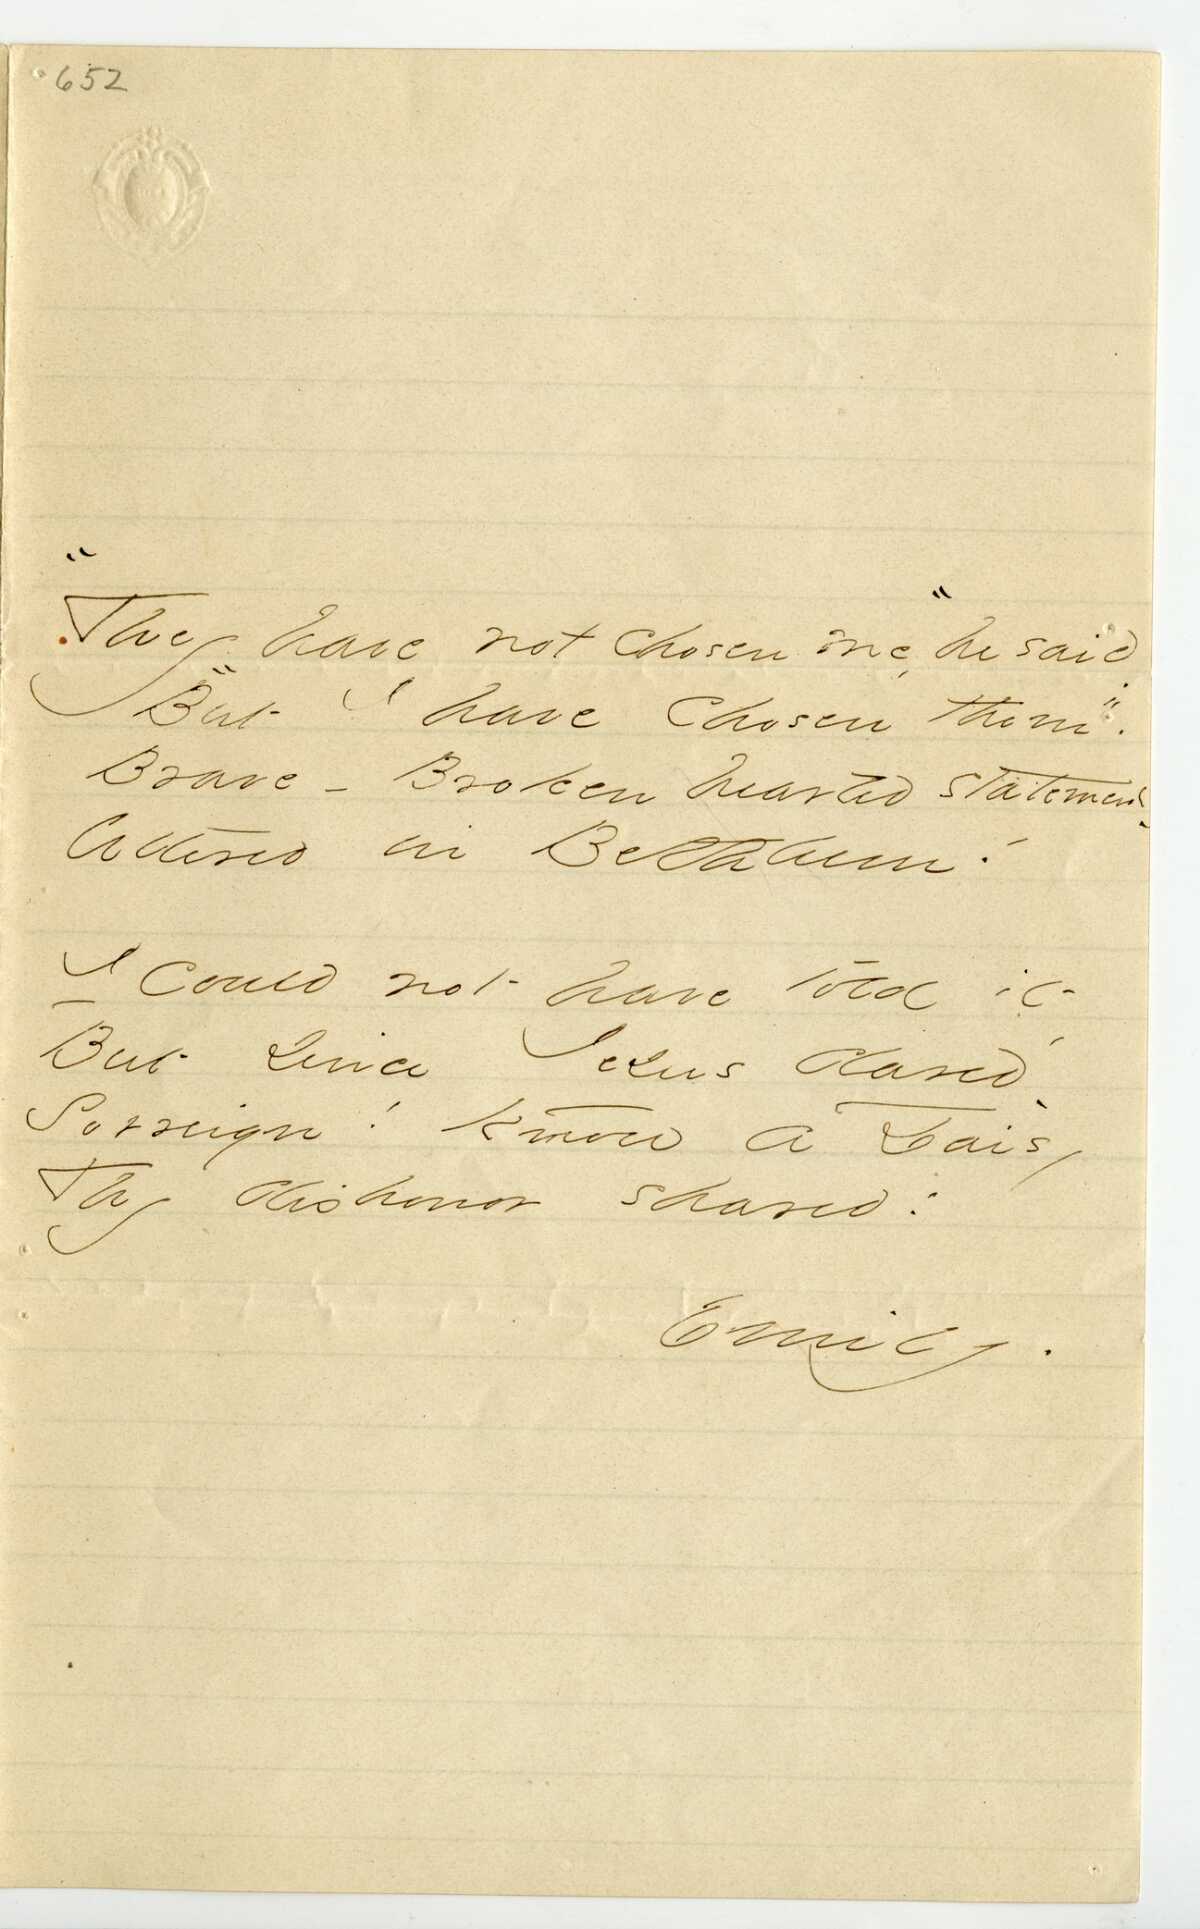 652
"They have not chosen me," he said,
"But I have chosen them".
Brave - Broken hearted statement,
Uttered in Bethleem!
I could not have told it,
But since Jesus dared,
Sovreign! Know a Daisy
Thy dishonor shared!
Emily.